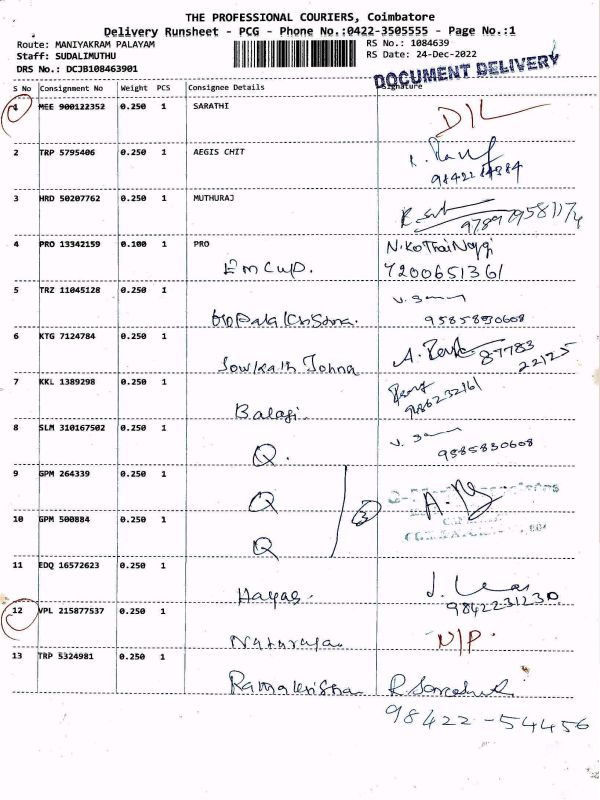 THE PROFESSIONAL COURIERS, Coimbatore
Delivery Runsheet - PCG - Phone No.:0422-3505555 - Page No.:1
Route: MANIYAKRAM PALAYAM RS No.: 1084639
Staff: SUDALIMUTHU RS Date: 24-Dec-2022
DRS No.: DCJB108463901
DOCUMENT DELIVERY
S No Consignment No Weight PCS Consignee Details Signature
1 MEE 900122352 0.250 1 SARATHI
D/L
2 TRP 5795406 0.250 1 AEGIS CHIT
3 HRD 50207762 0.250 1 MUTHURAJ
4 PRO 13342159 0.100 1 PRO N.KoThaiNaygi
7200651361
5 TRZ 11045128 0.250 1
9585890608
6 KTG 7124784 0.250 1 87783
22125
7 KKL 1389298 0.250 1
Balagi 9486232161
8 SLM 310167502 0.250 1
Q. 9585830608
9 GPM 264339 0.250 1
Q 3
10 GPM 500884 0.250 1
Q
11 EDQ 16572623 0.250 1
Hayag. 9842231230
12 VPL 215877537 0.250 1
Nataraja N/P.
13 TRP 5324981 0.250 1
Ramakrishna
98422-54456